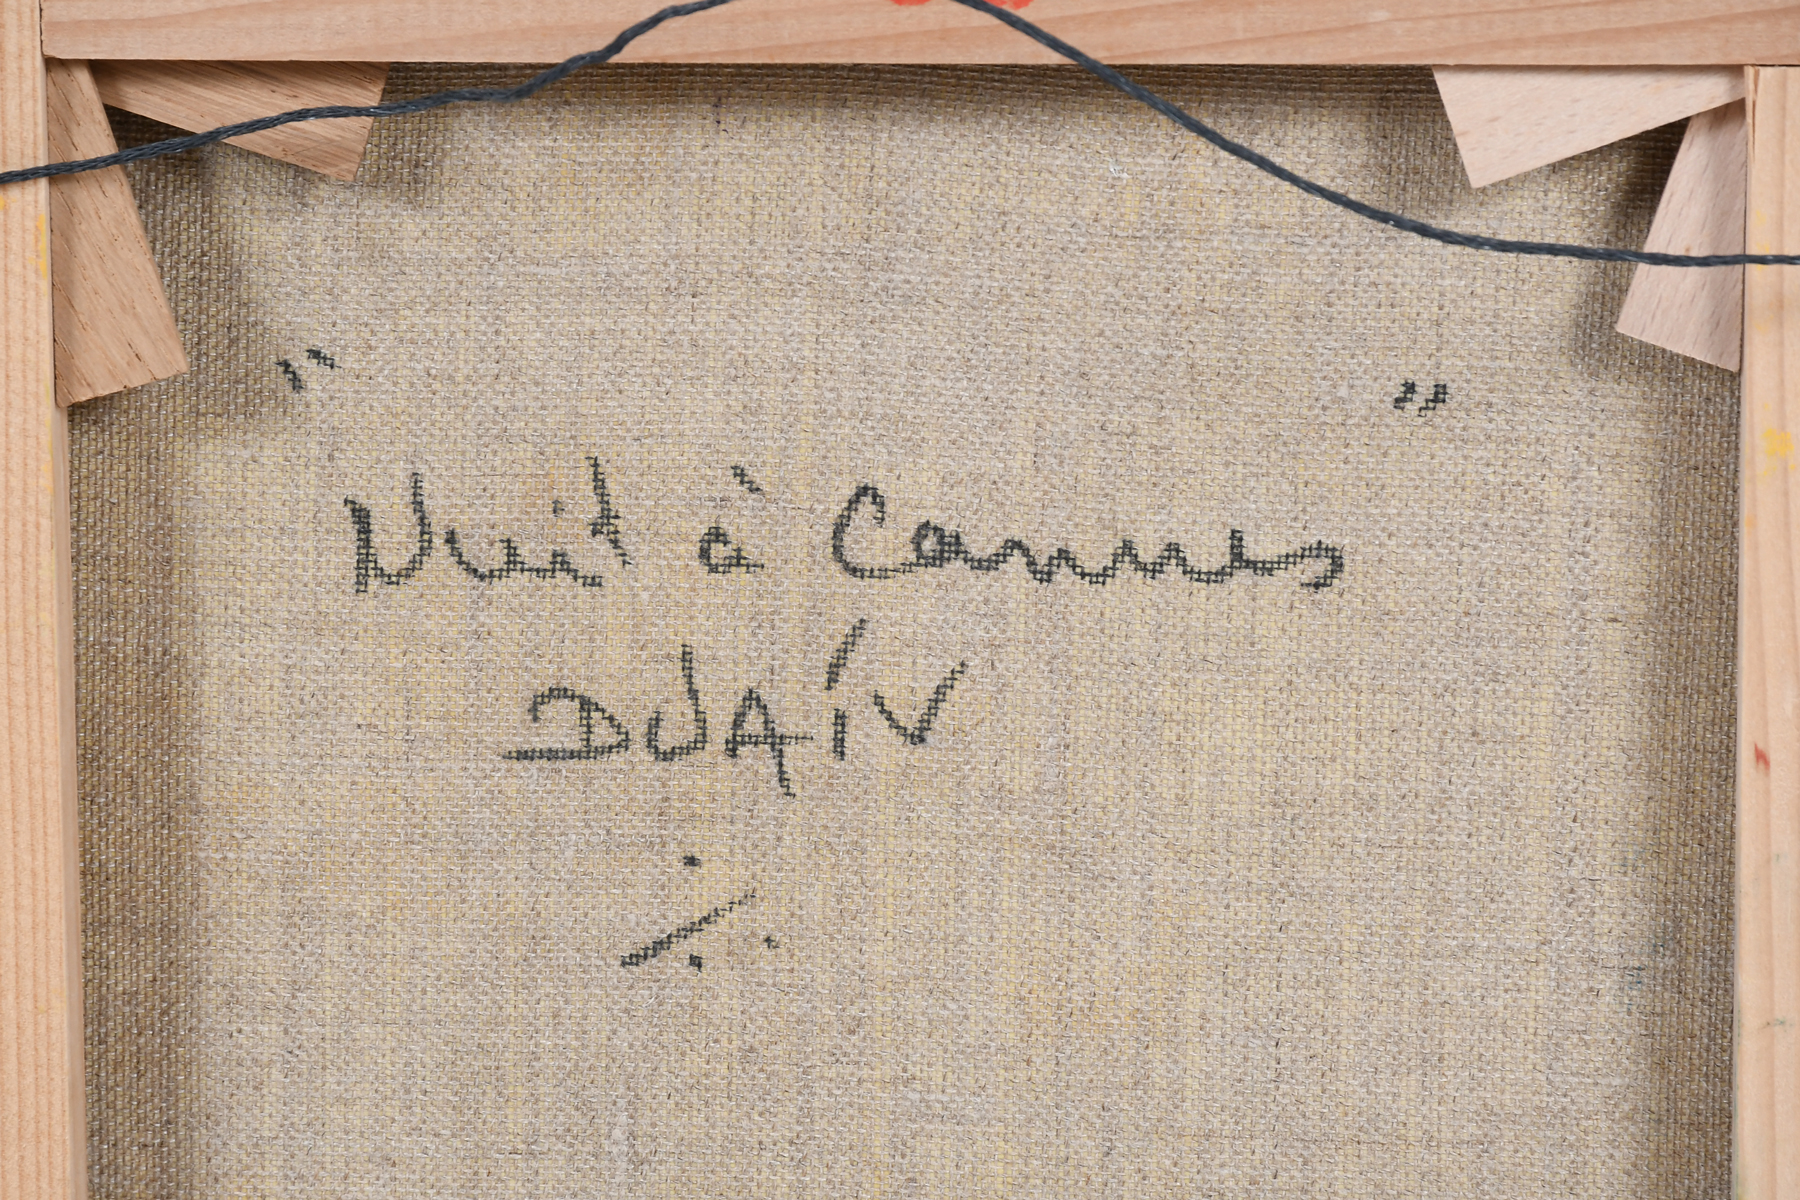 "Nuit à Cannes"
DUAÍV